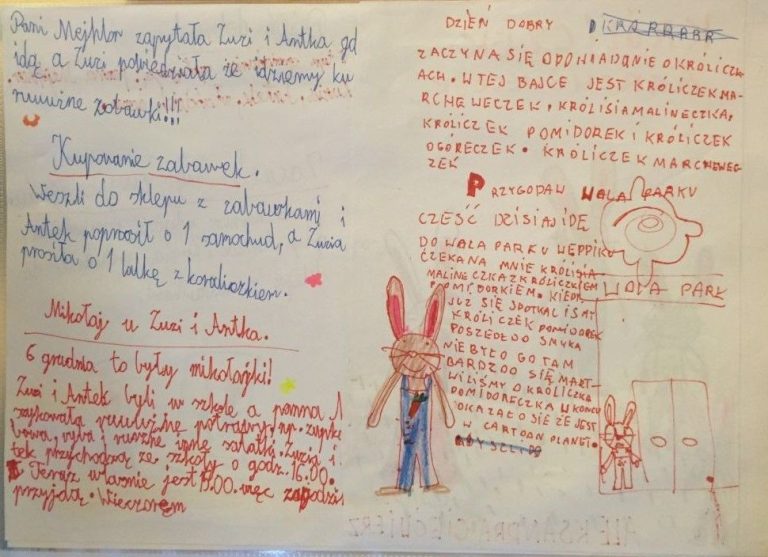 Pani Mejhlor zapytała Zuzi i Antka gd
idą a Zuzi powiedziała że idziemy ku
zabawki!!!
Kupowanie zabawek.
Weszli do sklepu z zabawkami i
Antek poprosił o 1 samochud, a Zuzia
prosiła o 1 lalkę z koralioczkiem.
Mikołaj u Zuzi i Antka.
6 grudnia to były mikołajki!
Zuzi i Antek byli w szkole a panna A
szykowała potrawy np. zupke
ryba i rużne inne sałatki. Zuzia i
tek przychodzą ze szkoły o godz. 16.00.
Teraz własnie jest 15.00. więc za godzin
przyjdą. Wieczorem
DZIEŃ DOBRY
ZACZYNA SIĘ OPOWIADANIE O KRÓLICZK
ACH. W TEJ BAJCE JEST KRÓLICZEK MA-
RCHEWECZEK, KRÓLISIA MALINECZKA,
KRÓLICZEK POMIDOREK I KRÓLICZEK
OGÓRECZEK. KRÓLICZEK MARCHEWEC
ZEK
PRZYGODA W WOLA PARKU
CZEŚĆ DZISIAJ IDĘ
DO WOLA PARKU WEPPIKU
CZEKA NA MNIE KRÓLISIA
MALINECZKA Z KRÓLICZKIEM
POMIDORKIEM. KIEDY
JUŻ SIĘ SPOTKALIŚMY
KRÓLICZEK POMIDOREK
POSZEDŁ DO SMYKA
NIE BYŁO GO TAM
BARDZOO SIĘ MART-
WILIŚMY O KRÓLICZKA
POMIDORECZKA W KOŃCU
OKAZAŁO SIĘ ŻE JEST
W CARTOON PLANET.
WOLA PARK